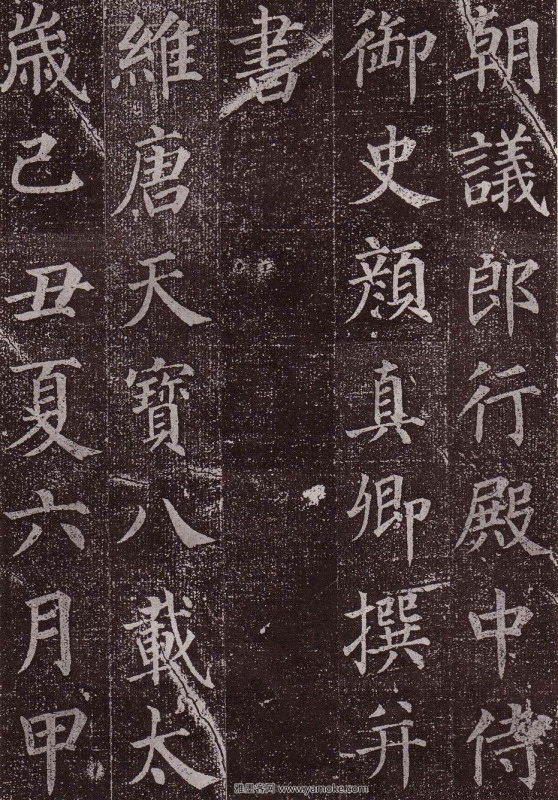 朝議郎行殿中侍
御史顔真卿撰并
書
維唐天寶八載太
歳己丑夏六月甲
雅墨客网 www.yamoke.com